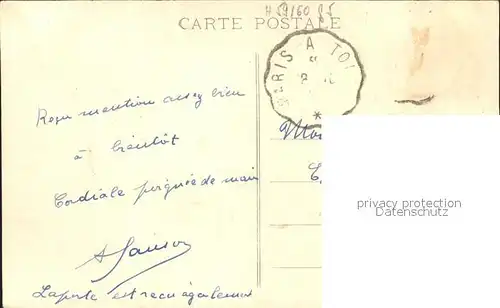 H 59/60 95
CARTE POSTALE
PARIS A TO
Reçu mention assez bien
à bientôt
Cordiale poignée de main
Laporte est reçu également
privacy protection
Datenschutz